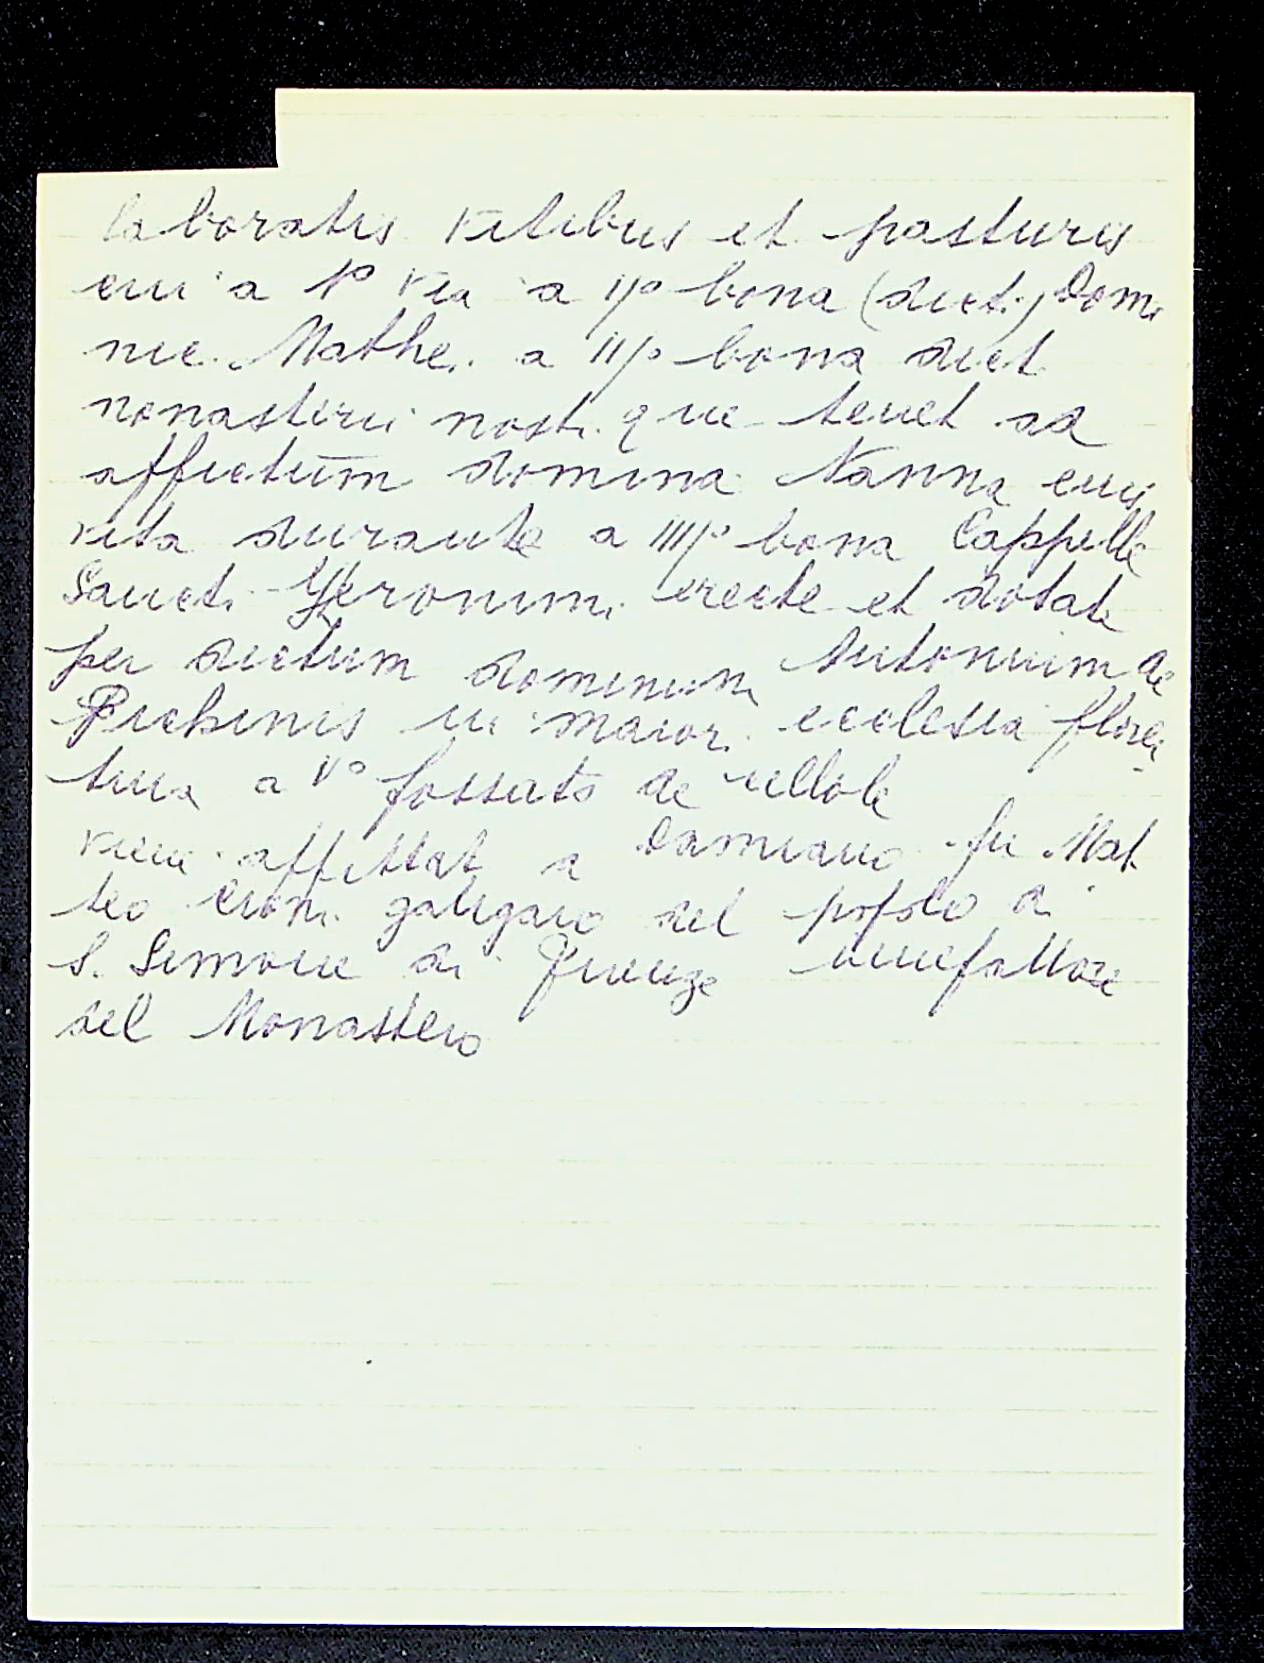 laboratis vitibus et pasturis
cui a 1º via a IIº bona (dicti) Domi
nic. Mathei a IIIº bona dict
monasterii nostri que tenet ad
affictum domina Nanna eius
vita durante a IIIIº bona Cappelle
Sancti Yeronimi erecte et dotate
per dictum dominum Antonium de
Pichinis in maiori ecclesia floren
tina a Vº fossato de
viene affittat a Damiano fu Mat
teo Cioni galigaio del popolo di
S. Simone di Firenze benefattore
del Monastero